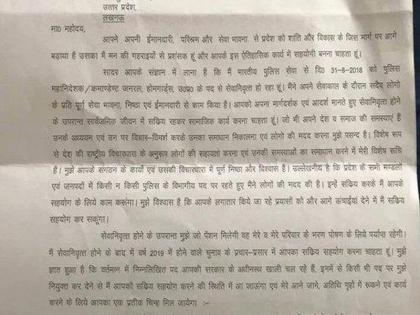 उत्तर प्रदेश,
लखनऊ
मा0 महोदय,
आपने अपनी ईमानदारी, परिश्रम और सेवा भावना से प्रदेश को शांति और विकास के जिस मार्ग पर आगे
बढ़ाया है उसका मैं मन की गहराइयों से प्रशंसक हूं और आपके इस ऐतिहासिक कार्य में सहयोगी बनना चाहता हूं।
सादर आपके संज्ञान में लाना है कि मैं भारतीय पुलिस सेवा से दि0 31-8-2018 को पुलिस
महानिदेशक/कमाण्डेन्ट जनरल, होमगार्डस, उ0प्र0 के पद से सेवानिवृत हो रहा हूं। मैंने अपने सेवाकाल के दौरान सदैव लोगों
के प्रति पूर्ण सेवा भावना, निष्ठा एवं ईमानदारी से काम किया है। आपको अपना मार्गदर्शक एवं आदर्श मानते हुए सेवानिवृत्त होने
के उपरान्त सार्वजनिक जीवन में सक्रिय रहकर सामाजिक कार्य करना चाहता हूं। जो भी अपने देश व समाज की समस्याएं हैं
उनके अध्ययन एवं उन पर विचार-विमर्श करके उनका समाधान निकालना एवं लोगों की मदद करना मुझे पसन्द है। विशेष रूप
से देश की राष्ट्रीय विचारधारा के अनुरूप लोगों की सहायता करना एवं उनकी समस्याओं का समाधान करने में मेरी विशेष रूचि
है। मुझे आपके संगठन के कार्यों एवं उसकी विचारधारा में पूर्ण निष्ठा और विश्वास है। उल्लेखनीय है कि प्रदेश के सभी मण्डलों
एवं जनपदों में किसी न किसी पुलिस के विभागीय पद पर रहते हुए मैंने लोगों की मदद की है। इन्हें सक्रिय करके मैं आपके
सहयोग के लिये काम करूंगा। मुझे विश्वास है कि आपके लगातार किये जा रहे प्रयासों को और आगे ऊंचाई देने में मैं सक्रिय
सहयोग कर सकूंगा।
सेवानिवृत्त होने के उपरान्त मुझे जो पेंशन मिलेगी वह मेरे व मेरे परिवार के भरण पोषण के लिये पर्याप्त रहेगी।
मैं सेवानिवृत्त होने के बाद में वर्ष 2019 में होने वाले चुनाव के प्रचार-प्रसार में आपका सक्रिय सहयोग करना चाहता हूं। मुझे
ज्ञात हुआ है कि वर्तमान में निम्नलिखित पद आपकी सरकार के अधीनस्थ खाली चल रहे हैं, इनमें से किसी भी पद पर मुझे
नियुक्त कर देने से मैं आपका सक्रिय सहयोग करने की स्थिति में आ जाऊंगा एवं मेरे आने जाने, अतिथि गृहों में रूकने एवं कार्य
करने के लिये आपका एक प्रतीक चिन्ह मिल जायेगा :-